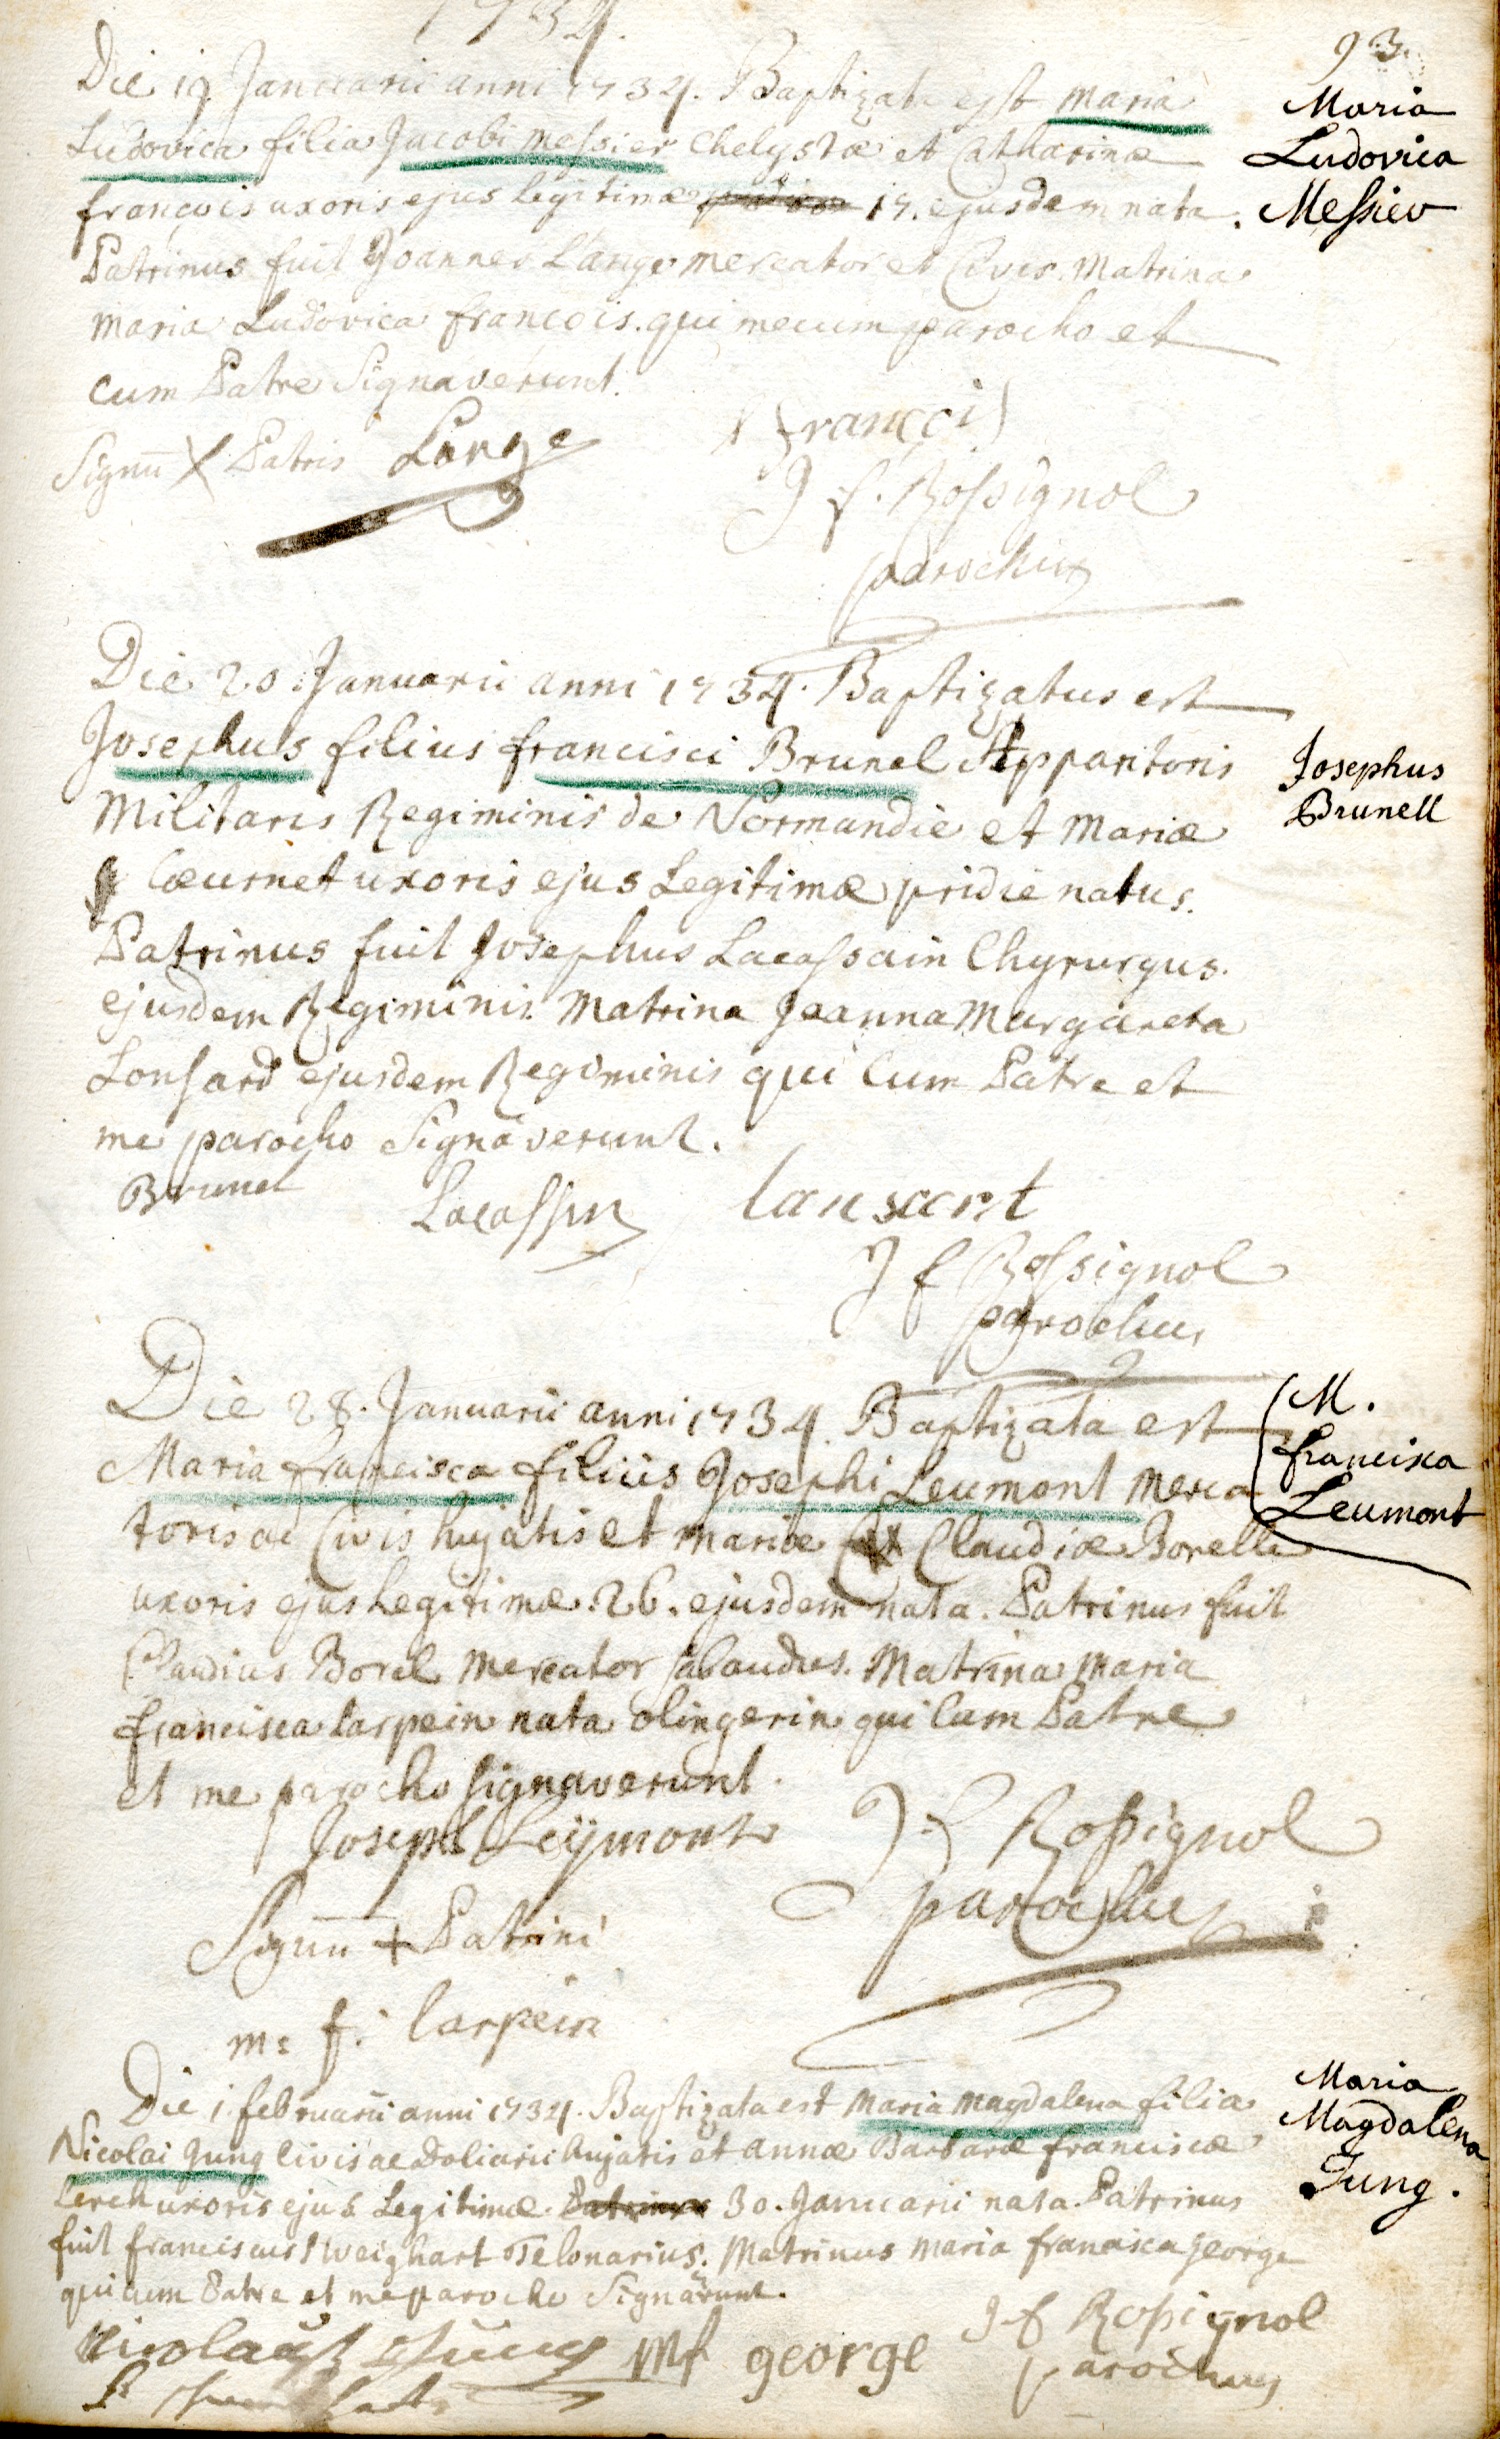 1734.
93.
Die 19 Januarii anni 1734. Baptizata est Maria
Ludovica filia Jacobi Messier Chelystæ et Catharinæ
francois uxoris ejus legitimæ 17. ejusdem nata.
Patrinus fuit Joannes Lange mercator et Civis. Matrina
Maria Ludovica francois. qui mecum parocho et
cum Patre Signaverunt.
Maria
Ludovica
Messier
Signū X Patris Lange
francoi
J f. Rossignol
parochus
Die 20 Januarii anni 1734. Baptizatus est
Josephus filius francisci Brunel Apparitoris
Militaris Regiminis de Normandie et Mariæ
Cœurnet uxoris ejus Legitimæ pridie natus.
Patrinus fuit Josephus Lacassain Chyrurgus.
ejusdem Regiminis. Matrina Jeanna Margareta
Lonsard ejusdem Regiminis qui Cum Patre et
me parocho Signaverunt.
Josephus
Brunell
Brunel Lacassin lansart
J f Rossignol
parochus
Die 28. Januarii anni 1734. Baptizata est
Maria francisca filius Josephi Leumont Merca
toris ac Civis hujatis et Mariæ Claudiæ Borelli
uxoris ejus Legitimæ. 26. ejusdem nata. Patrinus fuit
Claudius Borel Mercator sabaudus. Matrina Maria
francisca Larpein nata olingerin qui Cum Patre
et me parocho signaverunt.
M.
francisca
Leumont
Joseph Leÿmont
J f Rossignol
parochus
Signū + Patrini
m: f: larpein
Die 1 februarii anni 1734. Baptizata est Maria Magdalena filia
Nicolai Jung Civis ac Doliarii hujatis et Annæ Barbaræ franciscæ
Lerch uxoris ejus Legitimæ. Patrinus 30. Januarii nata. Patrinus
fuit franciscus Sweighart Telonarius. Matrinus Maria francisca george
qui cum Patre et me parocho Signarunt.
Maria
Magdalena
Jung.
Nicolaus Jung Mf george
J f Rossignol
parochus